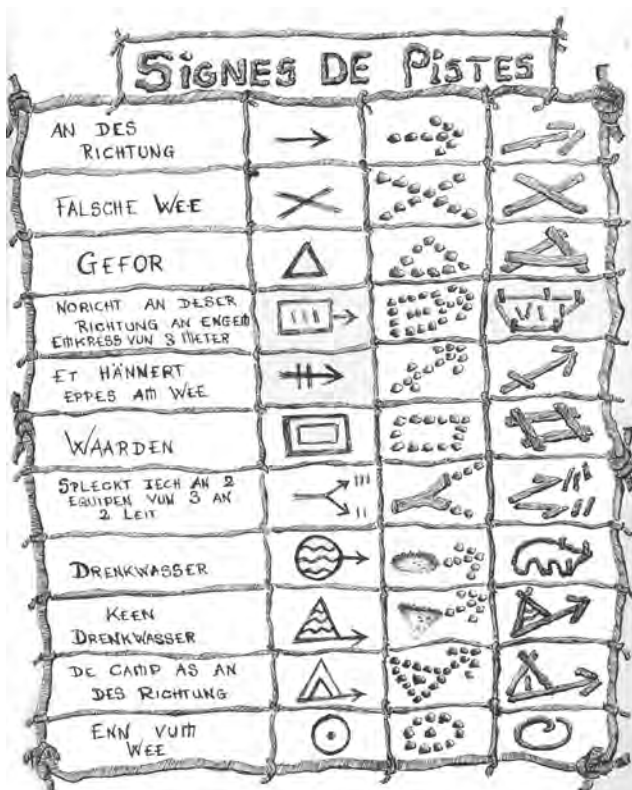 SIGNES DE PISTES
AN DES
RICHTUNG
FALSCHE WEE
GEFOR
NORICHT AN DESER
RICHTUNG AN ENGEM
EMKRESS VUN 3 METER
ET HÄNNERT
EPPES AM WEE
WAARDEN
SPLECKT IECH AN 2
EQUIPEN VUN 3 AN
2 LEIT
DRENKWASSER
KEEN
DRENKWASSER
DE CAMP AS AN
DES RICHTUNG
ENN VUM
WEE